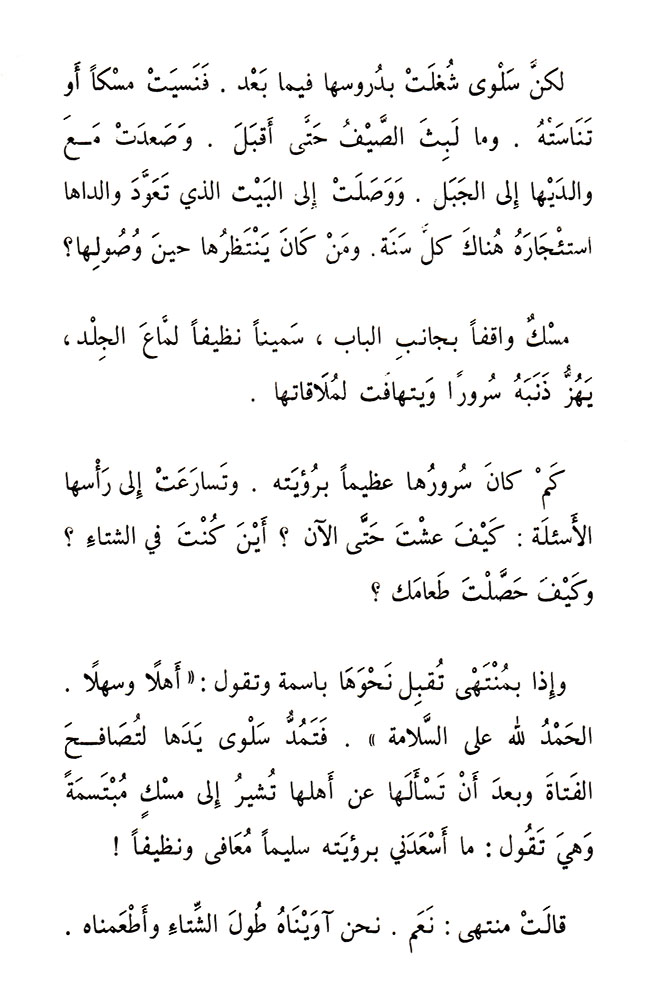 لكنَّ سَلْوى شُغلَتْ بدُروسها فيما بَعْد . فَنَسيَتْ مسْكاً أَو
تَنَاسَتْهُ . وما لَبِثَ الصَّيْفُ حَتَّى أَقبَلَ . وَصَعدَتْ مَـعَ
والدَيْها إِلى الجَبَل . وَوَصَلَتْ إِلى البَيْت الذي تَعَوَّدَ والداها
استئْجَارَهُ هُناكَ كلَّ سَنَة. ومَنْ كَانَ يَنْتَظرُها حينَ وُصُولِها؟
مسْكٌ واقفاً بجانبِ الباب ، سَميناً نظيفاً لمَّاعَ الجِلْد ،
يَهُزُّ ذَنَبَهُ سُرورًا وَيتهافَت لمُلَاقاتها .
كَمْ كانَ سُرورُها عظيماً برُؤيَته . وتَسارَعَتْ إِلى رَأْسها
الأَسئلَة : كَيْفَ عشْتَ حَتَّى الآن ؟ أَيْنَ كُنْتَ في الشتاءِ ؟
وكَيْفَ حَصَّلْتَ طَعامَك ؟
وإِذا بمُنْتَهْى تُقبِل نَحْوَهَا باسمة وتقول : « أَهلًا وسهلًا .
الحَمْدُ لله على السَّلامة » . فَتَمُدُّ سَلْوى يَدَها لتُصَافـحَ
الفَتاةَ وبعدَ أَنْ تَسْأَلَها عن أَهلها تُشيرُ إِلى مسْكٍ مُبْتَسمَةً
وَهيَ تَقُول : ما أَسْعَدَني برؤيَته سليماً مُعَافى ونظيفاً !
قالَتْ منتهى : نَعَم . نحن آوَيْنَاهُ طُولَ الشِّتاءِ وأَطْعَمناه .